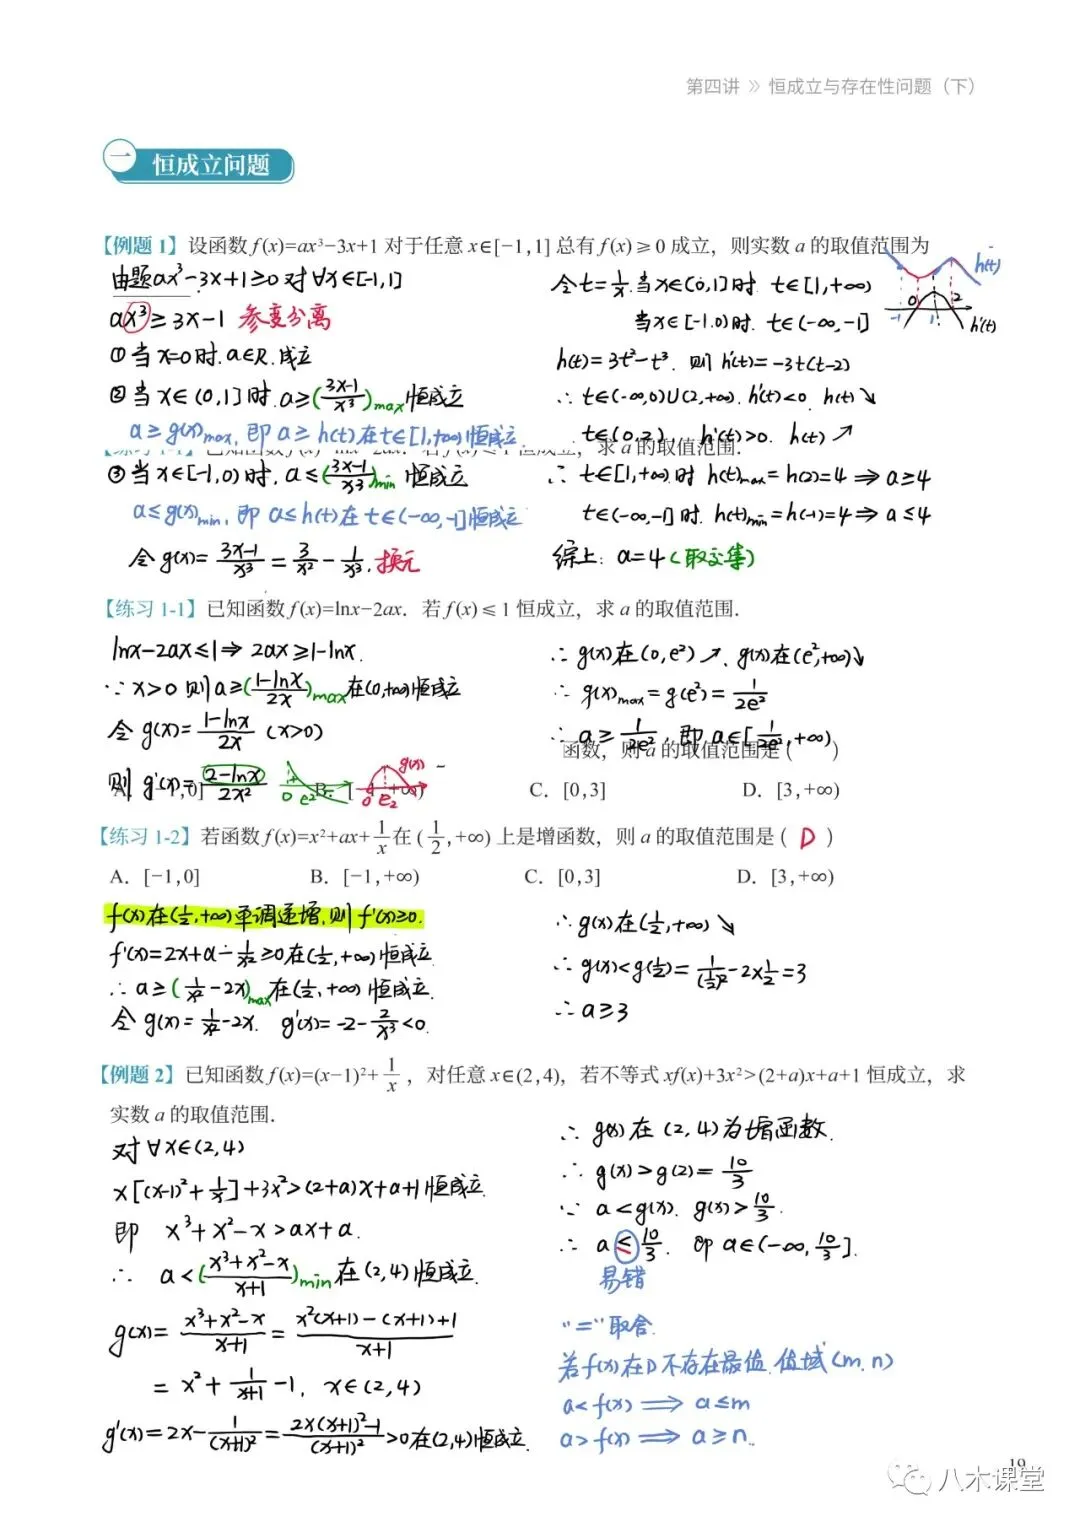 第四讲 》 恒成立与存在性问题（下）
一 恒成立问题
【例题 1】设函数 f(x)=ax³−3x+1 对于任意 x∈[−1,1] 总有 f(x) ≥ 0 成立，则实数 a 的取值范围为
由题ax³-3x+1≥0 对∀x∈[-1,1]
ax³≥3x-1 参变分离
①当x=0时.a∈R.成立
②当x∈(0,1]时.a≥(3x-1/x³)max恒成立
a≥g(x)max，即 a≥h(t)在t∈[1,+∞)恒成立
③当x∈[-1,0)时，a≤(3x-1/x³)min 恒成立
a≤g(x)min，即 a≤h(t)在t∈(-∞,-1]恒成立
令g(x)=3x-1/x³=3/x²-1/x³.换元
令t=1/x.当x∈(0,1]时 t∈[1,+∞)
当x∈[-1.0)时. t∈(-∞,-1]
h(t)=3t²-t³. 则 h'(t)=-3t(t-2)
∴ t∈(-∞,0)∪(2,+∞).h'(t)<0. h(t)↘
t∈(0,2). h'(t)>0. h(t)↗
求 a 的取值范围.
∴ t∈[1,+∞)时 h(t)max=h(2)=4⇒a≥4
t∈(-∞,-1]时. h(t)min=h(-1)=4⇒a≤4
综上: a=4(取交集)
h(t)
0 2
-1 1
h'(t)
【练习 1-1】已知函数 f(x)=lnx−2ax．若 f(x) ≤ 1 恒成立，求 a 的取值范围．
lnx-2ax≤1⇒2ax≥1-lnx.
∵x>0 则a≥(1-lnx/2x)max在(0,+∞)恒成立
令g(x)=1-lnx/2x (x>0)
则 g'(x)=2-lnx/2x²
+ 0 e²
g(x) 0 e2
∴ g(x)在(0,e²)↗. g(x)在(e²,+∞)↘
∴ g(x)max=g(e²)=1/2e²
∴ a≥1/2e²，即 a∈[1/2e²,+∞)
函数，则 a 的取值范围是 ( )
C．[0,3] D．[3,+∞)
【练习 1-2】若函数 f(x)=x²+ax+1/x 在 (1/2,+∞) 上是增函数，则 a 的取值范围是 ( D )
A．[−1,0] B．[−1,+∞) C．[0,3] D．[3,+∞)
f(x)在(½,+∞)单调递增,则f'(x)≥0.
f'(x)=2x+a-1/x²≥0在(½,+∞)恒成立
∴ a≥(1/x²-2x)max在(½,+∞)恒成立.
令 g(x)=1/x²-2x. g'(x)=-2-2/x³<0.
∴g(x)在(½,+∞)↘
∴ g(x)<g(½)=1/(½)²-2×½=3
∴a≥3
【例题 2】已知函数 f(x)=(x−1)²+1/x，对任意 x∈(2,4)，若不等式 xf(x)+3x²>(2+a)x+a+1 恒成立，求
实数 a 的取值范围．
对∀x∈(2,4)
x[(x-1)²+1/x]+3x²>(2+a)x+a+1恒成立
即 x³+x²-x>ax+a.
∴ a<(x³+x²-x/x+1)min在(2,4)恒成立.
g(x)=x³+x²-x/x+1=x²(x+1)-(x+1)+1/x+1
=x²+1/x+1-1. x∈(2,4)
g'(x)=2x-1/(x+1)²=2x(x+1)²-1/(x+1)²>0在(2,4)恒成立.
∴ g(x)在(2,4)为增函数.
∴ g(x)>g(2)=10/3
∵ a<g(x). g(x)>10/3.
∴ a≤10/3. 即a∈(-∞,10/3].
易错
"="取舍.
若f(x)在D不存在最值.值域(m,n)
a<f(x)⟹a≤m
a>f(x)⟹a≥n.
19
八木课堂